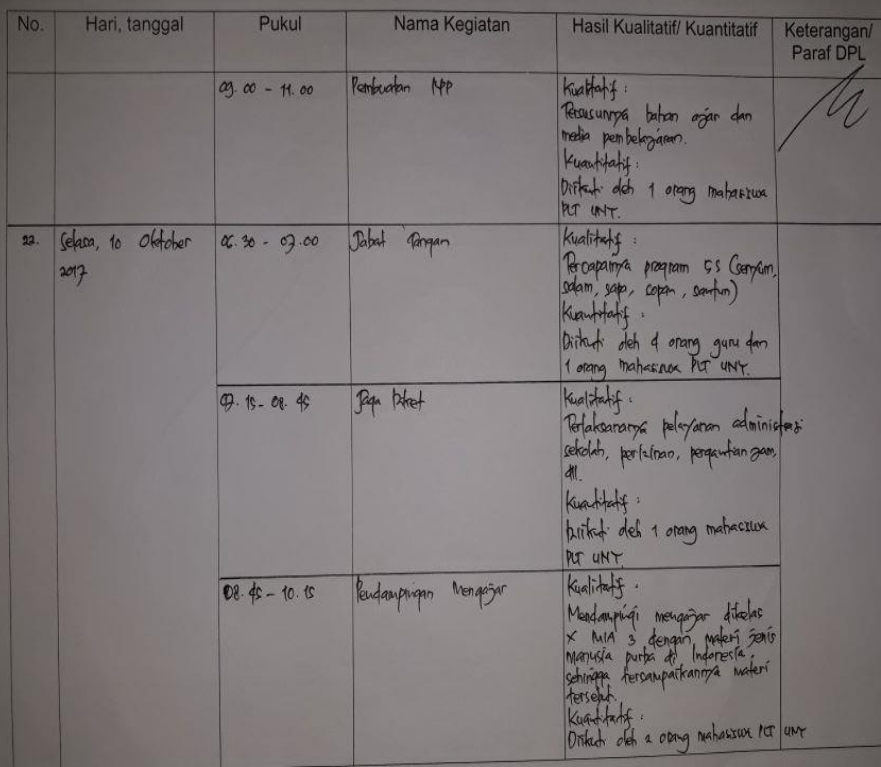 No. Hari, tanggal Pukul Nama Kegiatan Hasil Kualitatif/ Kuantitatif Keterangan/
Paraf DPL
09.00 - 11.00 Pembuatan RPP Kualitatif :
Tersusunnya bahan ajar dan
media pembelajaran.
Kuantitatif :
Diikuti oleh 1 orang mahasiswa
PLT UNY.
22. Selasa, 10 Oktober 06.30 - 07.00 Jabat Tangan Kualitatif :
2017 Tercapainya program 5S (senyum,
salam, sapa, sopan, santun)
Kuantitatif :
Diikuti oleh 4 orang guru dan
1 orang mahasiswa PLT UNY.
07.15 - 08.45 Jaga Piket Kualitatif :
Terlaksananya pelayanan administrasi
sekolah, perizinan, pergantian jam,
dll.
Kuantitatif :
Diikuti oleh 1 orang mahasiswa
PLT UNY
08.45 - 10.15 Pendampingan Mengajar Kualitatif :
Mendampingi mengajar dikelas
X MIA 3 dengan materi jenis
manusia purba di Indonesia.
sehingga tersampaikannya materi
tersebut.
Kuantitatif :
Diikuti oleh 2 orang mahasiswa PLT UNY